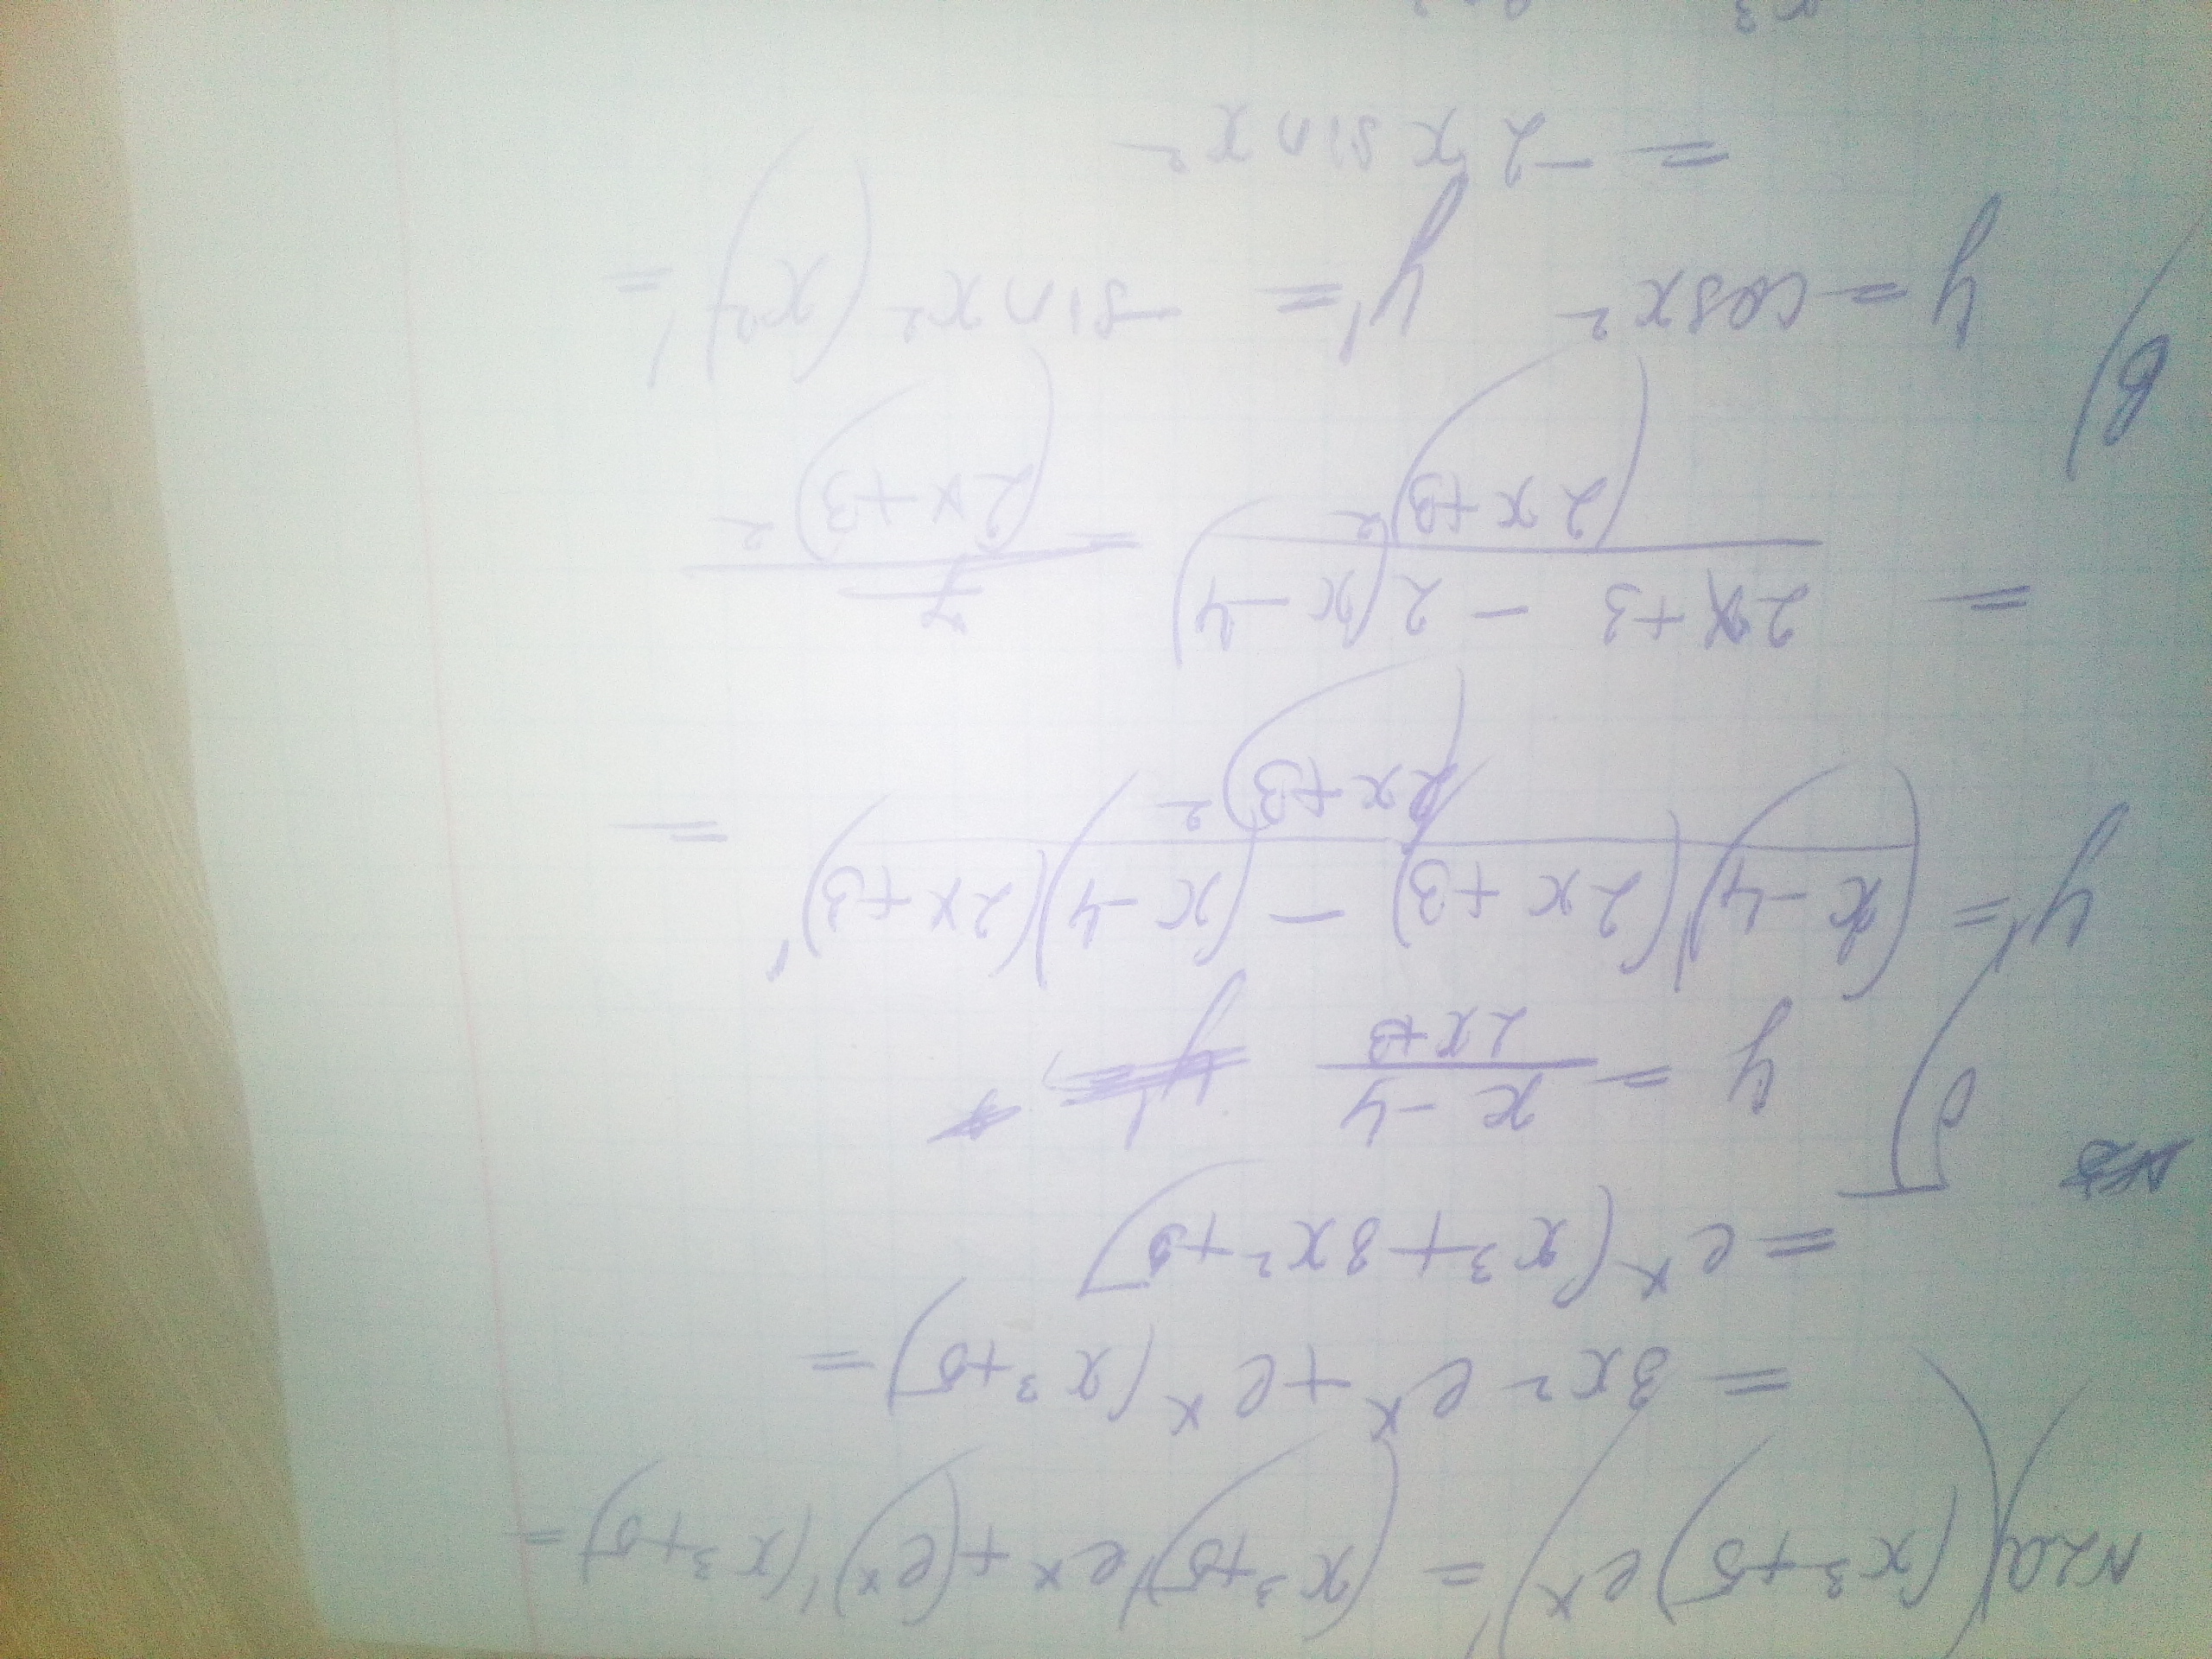 N2a) ((x³+5)eˣ)' = (x³+5)'eˣ + (eˣ)'(x³+5) =
= 3x²eˣ + eˣ(x³+5) =
= eˣ(x³+3x²+5)
б) y = (x-4)/(2x+3)
y' = ((x-4)'(2x+3) - (x-4)(2x+3)')/(2x+3)² =
= (2x+3 - 2(x-4))/(2x+3)² = 7/(2x+3)²
в) y = cosx² y' = -sinx²(x²)' =
= -2x sinx²